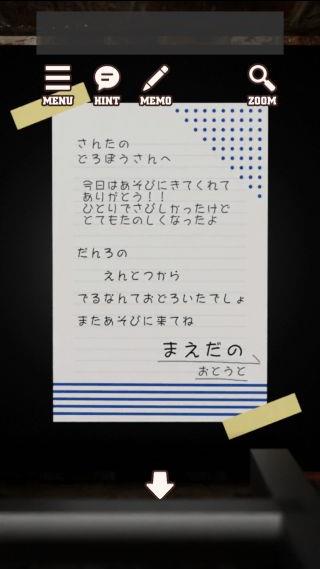 MENU
HINT
MEMO
ZOOM
さんたの
どろぼうさんへ
今日はあそびにきてくれて
ありがとう！！
ひとりでさびしかったけど
とてもたのしくなったよ
だんろの
えんとつから
でるなんておどろいたでしょ
またあそびに来てね
まえだの
おとうと